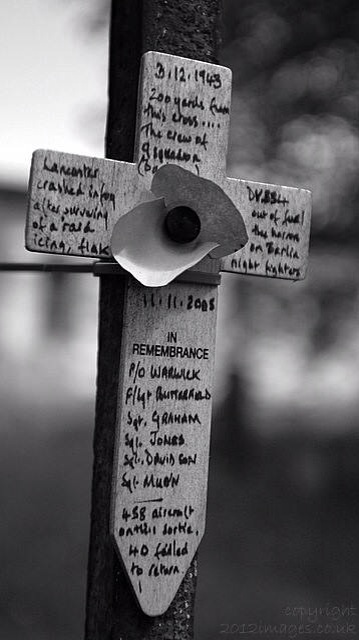 3.12.1943
200 yards from
this cross....
The crew of
9 Squadron
Lancaster
crashed in fog
after surviving
of a raid
icing, flak
DV334
out of fuel
the horror
on Berlin
night fighters
11.11.2008
IN
REMEMBRANCE
P/O WARWICK
F/Sgt RUTHERFORD
Sgt. GRAHAM
Sgt. JONES
Sgt. DAVIDSON
Sgt.
458 aircraft
on this sortie,
40 failed
to return
copyright
2012images.co.uk